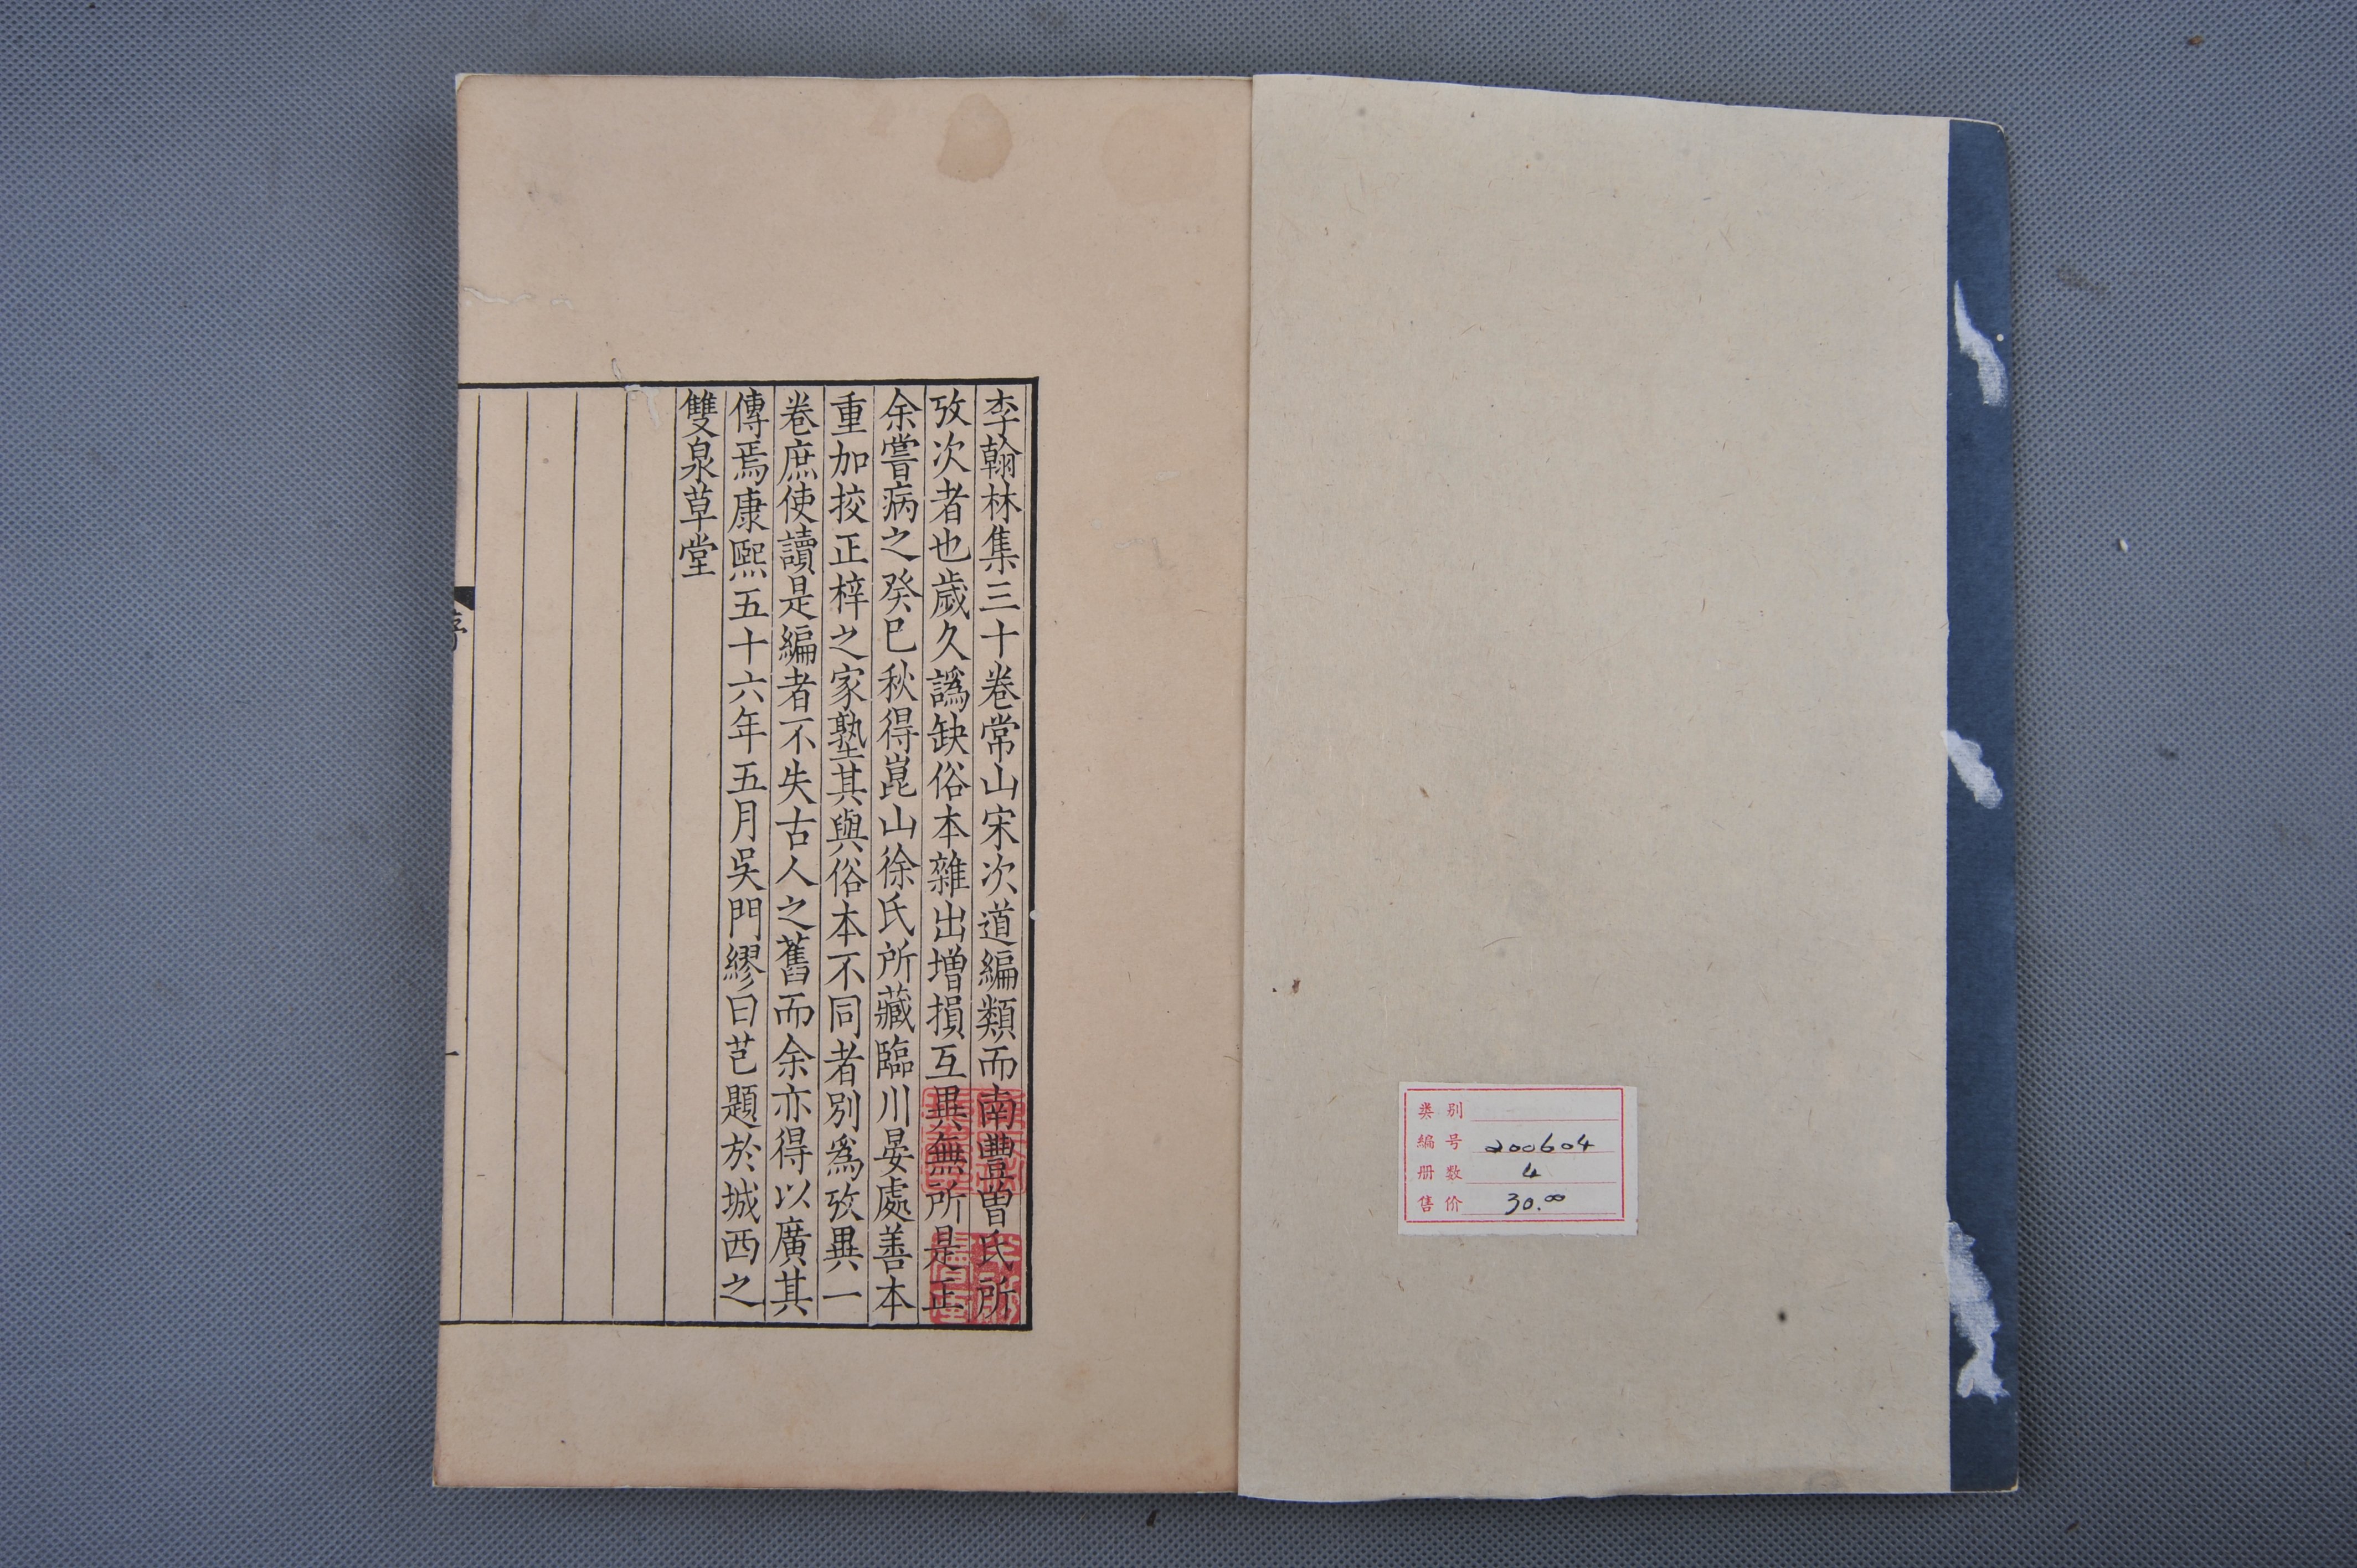 李翰林集三十卷常山宋次道編類而南豐曾氏所
攷次者也歲久譌缺俗本雜出增損互異無所是正
余嘗病之癸巳秋得崑山徐氏所藏臨川晏處善本
重加挍正梓之家塾其與俗本不同者別爲攷異一
卷庶使讀是編者不失古人之舊而余亦得以廣其
傳焉康熙五十六年五月吳門繆曰芑題於城西之
雙泉草堂
序
一
类别
编号 200604
册数 4
售价 30.00